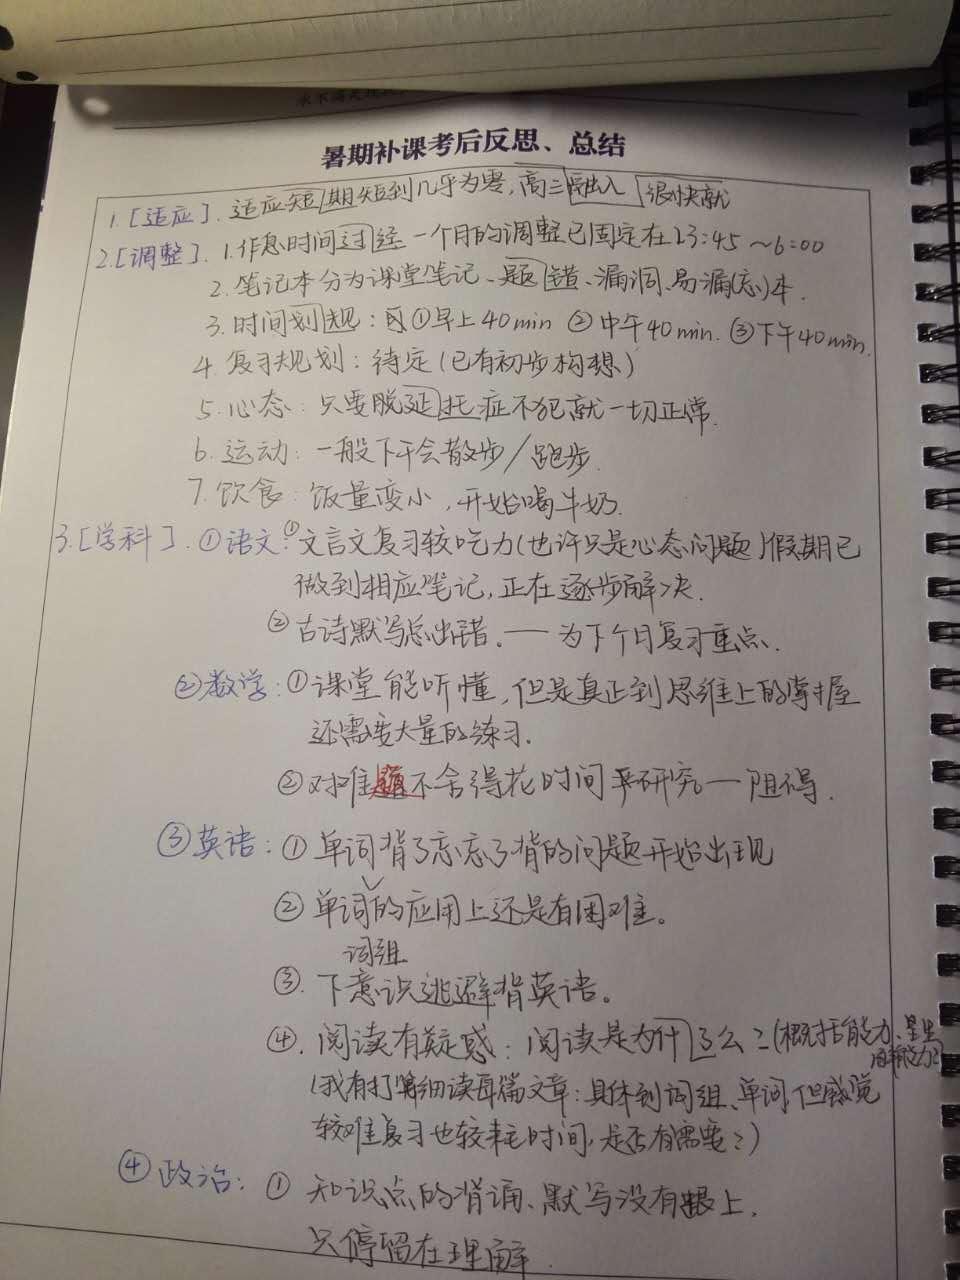 暑期补课考后反思、总结
1.[适应]. 适应短期短到几乎为零,高三融入很快就
2.[调整]. 1.作息时间过经一个月的调整已固定在23:45~6:00
2.笔记本分为课堂笔记、题错、漏洞、易漏(忘)本.
3.时间划规: ①早上40min ②中午40min. ③下午40min.
4.复习规划: 待定(已有初步构想)
5.心态: 只要脱延托症不犯就一切正常.
6.运动: 一般下午会散步/跑步.
7.饮食: 饭量变小,开始喝牛奶.
3.[学科]. ①语文: ①文言文复习较吃力(也许只是心态问题)假期已
做到相应笔记,正在逐步解决.
②古诗默写总出错.——为下个月复习重点.
②数学: ①课堂能听懂,但是真正到思维上的掌握
还需要大量的练习.
②对难题不舍得花时间来研究—阻碍.
③英语: ①单词背了忘忘了背的问题开始出现
②单词的应用上还是有困难。
词组
③.下意识逃避背英语。
④.阅读有疑惑: 阅读是为什了么?(概括能力、
理解能力?)
(我有打算细读每篇文章:具体到词组、单词 但感觉
较难复习也较耗时间,是否有需要?)
④政治: ①知识点的背诵、默写没有跟上,
只停留在理解.